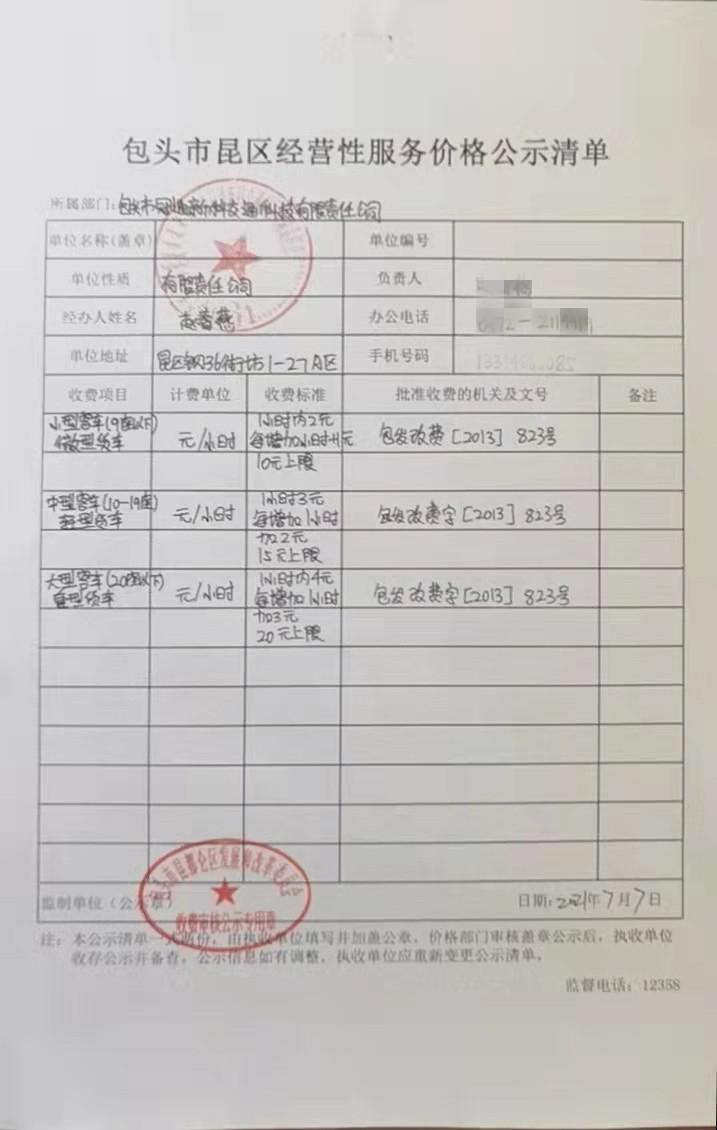 包头市昆区经营性服务价格公示清单
所属部门:包头市 交通科技有限责任公司
单位名称(盖章) 单位编号
单位性质 有限责任公司 负责人
经办人姓名 办公电话
单位地址 昆区钢36街坊1-27A区 手机号码
收费项目 计费单位 收费标准 批准收费的机关及文号 备注
小型客车(9座以下)
微型货车
元/小时
1小时内2元
每增加1小时+1元
10元上限
包发改费[2013] 823号
中型客车(10-19座)
轻型货车
元/小时
1小时3元
每增加1小时
加2元
15元上限
包发改费字[2013] 823号
大型客车(20座以下)
重型货车
元/小时
1小时内4元
每增加1小时
加3元
20元上限
包发改费字[2013] 823号
包头市昆都仑区发展和改革委员会
收费审核公示专用章
监制单位(公示章) 日期:2021年7月7日
注:本公示清单一式两份,由执收单位填写并加盖公章,价格部门审核盖章公示后,执收单位
收存公示并备查,公示信息如有调整,执收单位应重新变更公示清单。
监督电话:12358